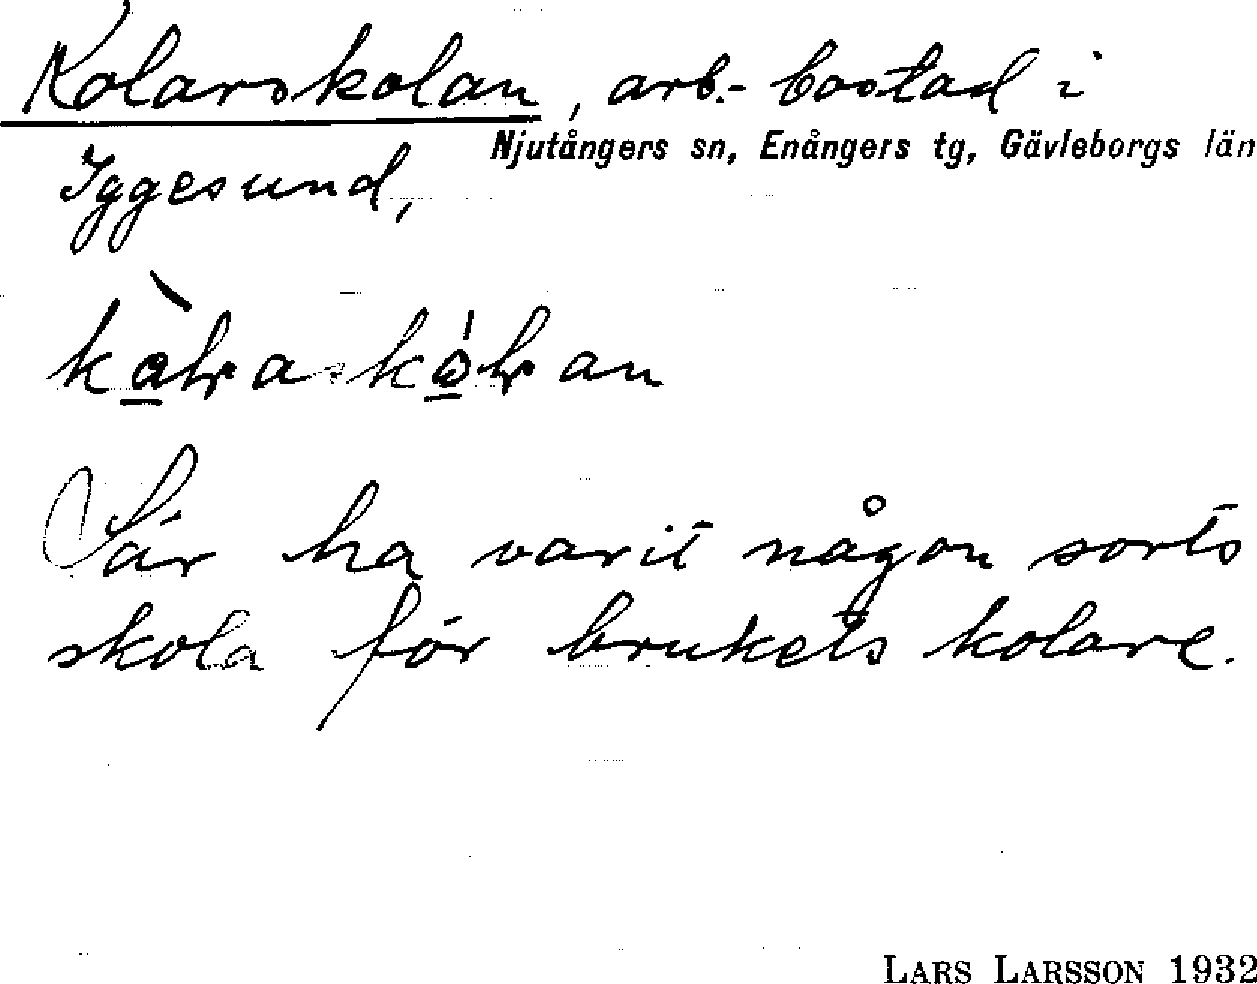 Kolarskolan, arb.- bostad i
Njutångers sn, Enångers tg, Gävleborgs län
Iggesund,
skola för brukets kolare.
Lär ha varit någon sorts
LARS LARSSON 1932